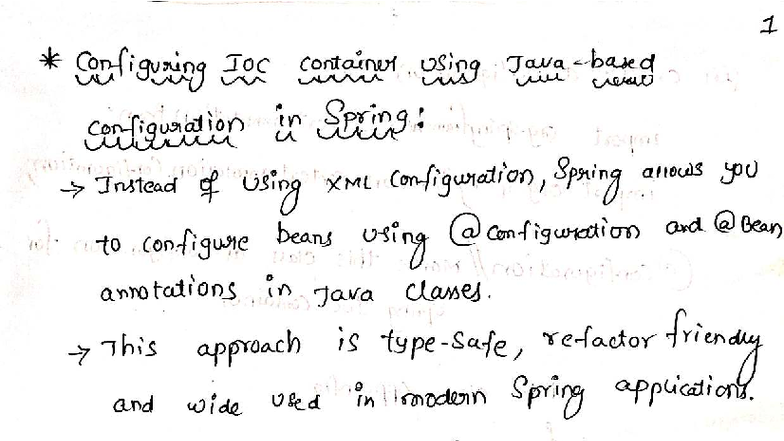 1
* Configuring IOC container using Java-based
configuration in Spring:
→ Instead of using XML configuration, Spring allows you
to configure beans using @configuration and @Bean
annotations in Java classes.
→ This approach is type-safe, refactor friendly
and wide used in modern Spring applications.